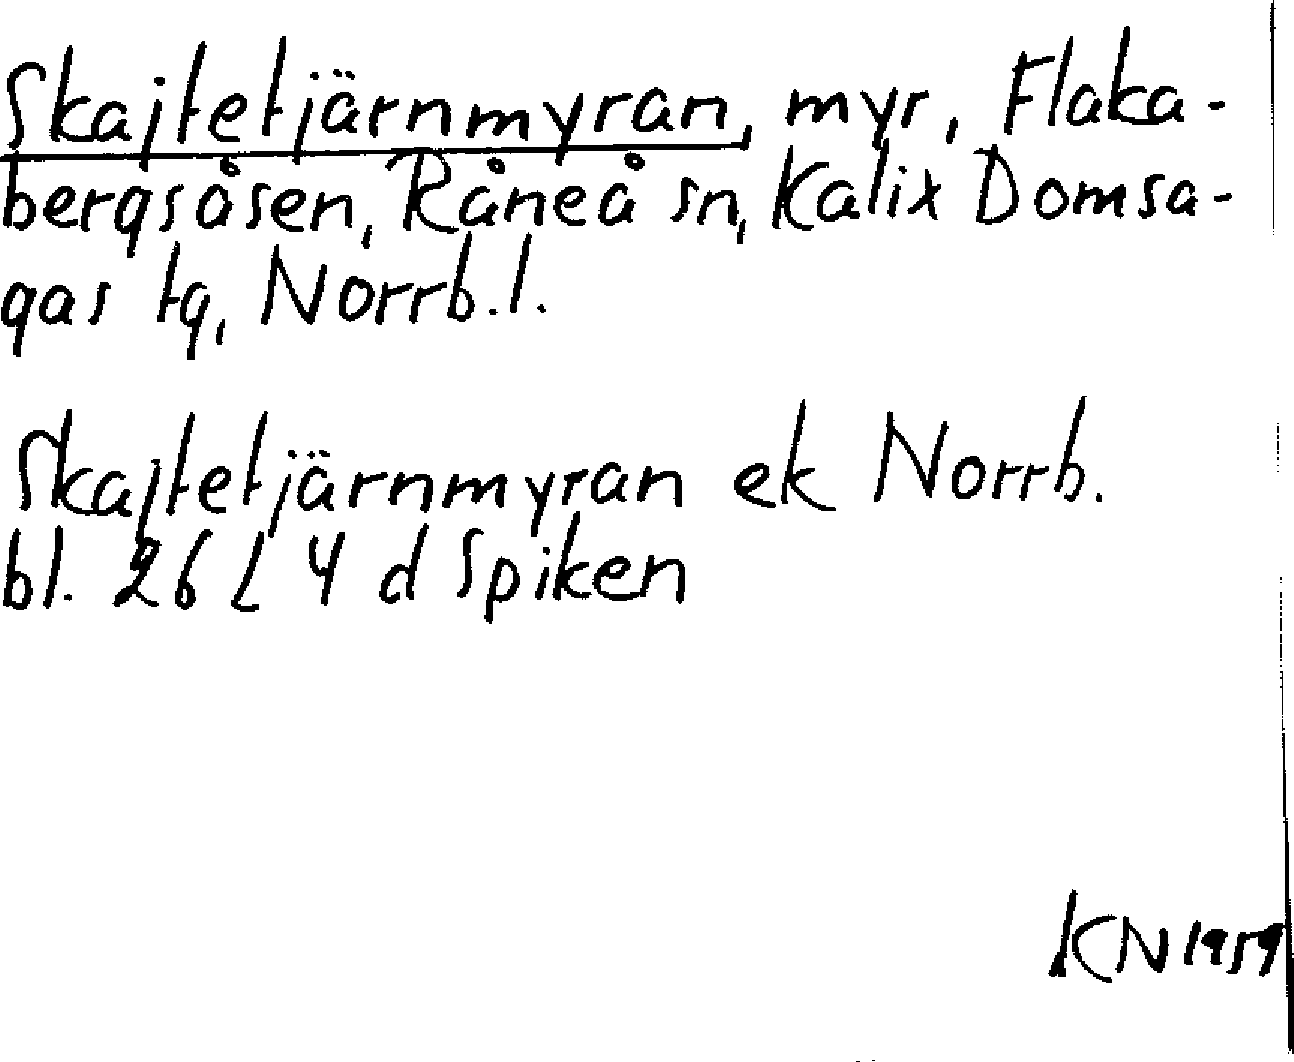 Skajtetjärnmyran, myr, Flaka-
bergsåsen, Råneå sn, Kalix Domsa-
gas tg, Norrb.l.
Skajtetjärnmyran ek Norrb.
bl. 26 L 4 d Spiken
KN 1959